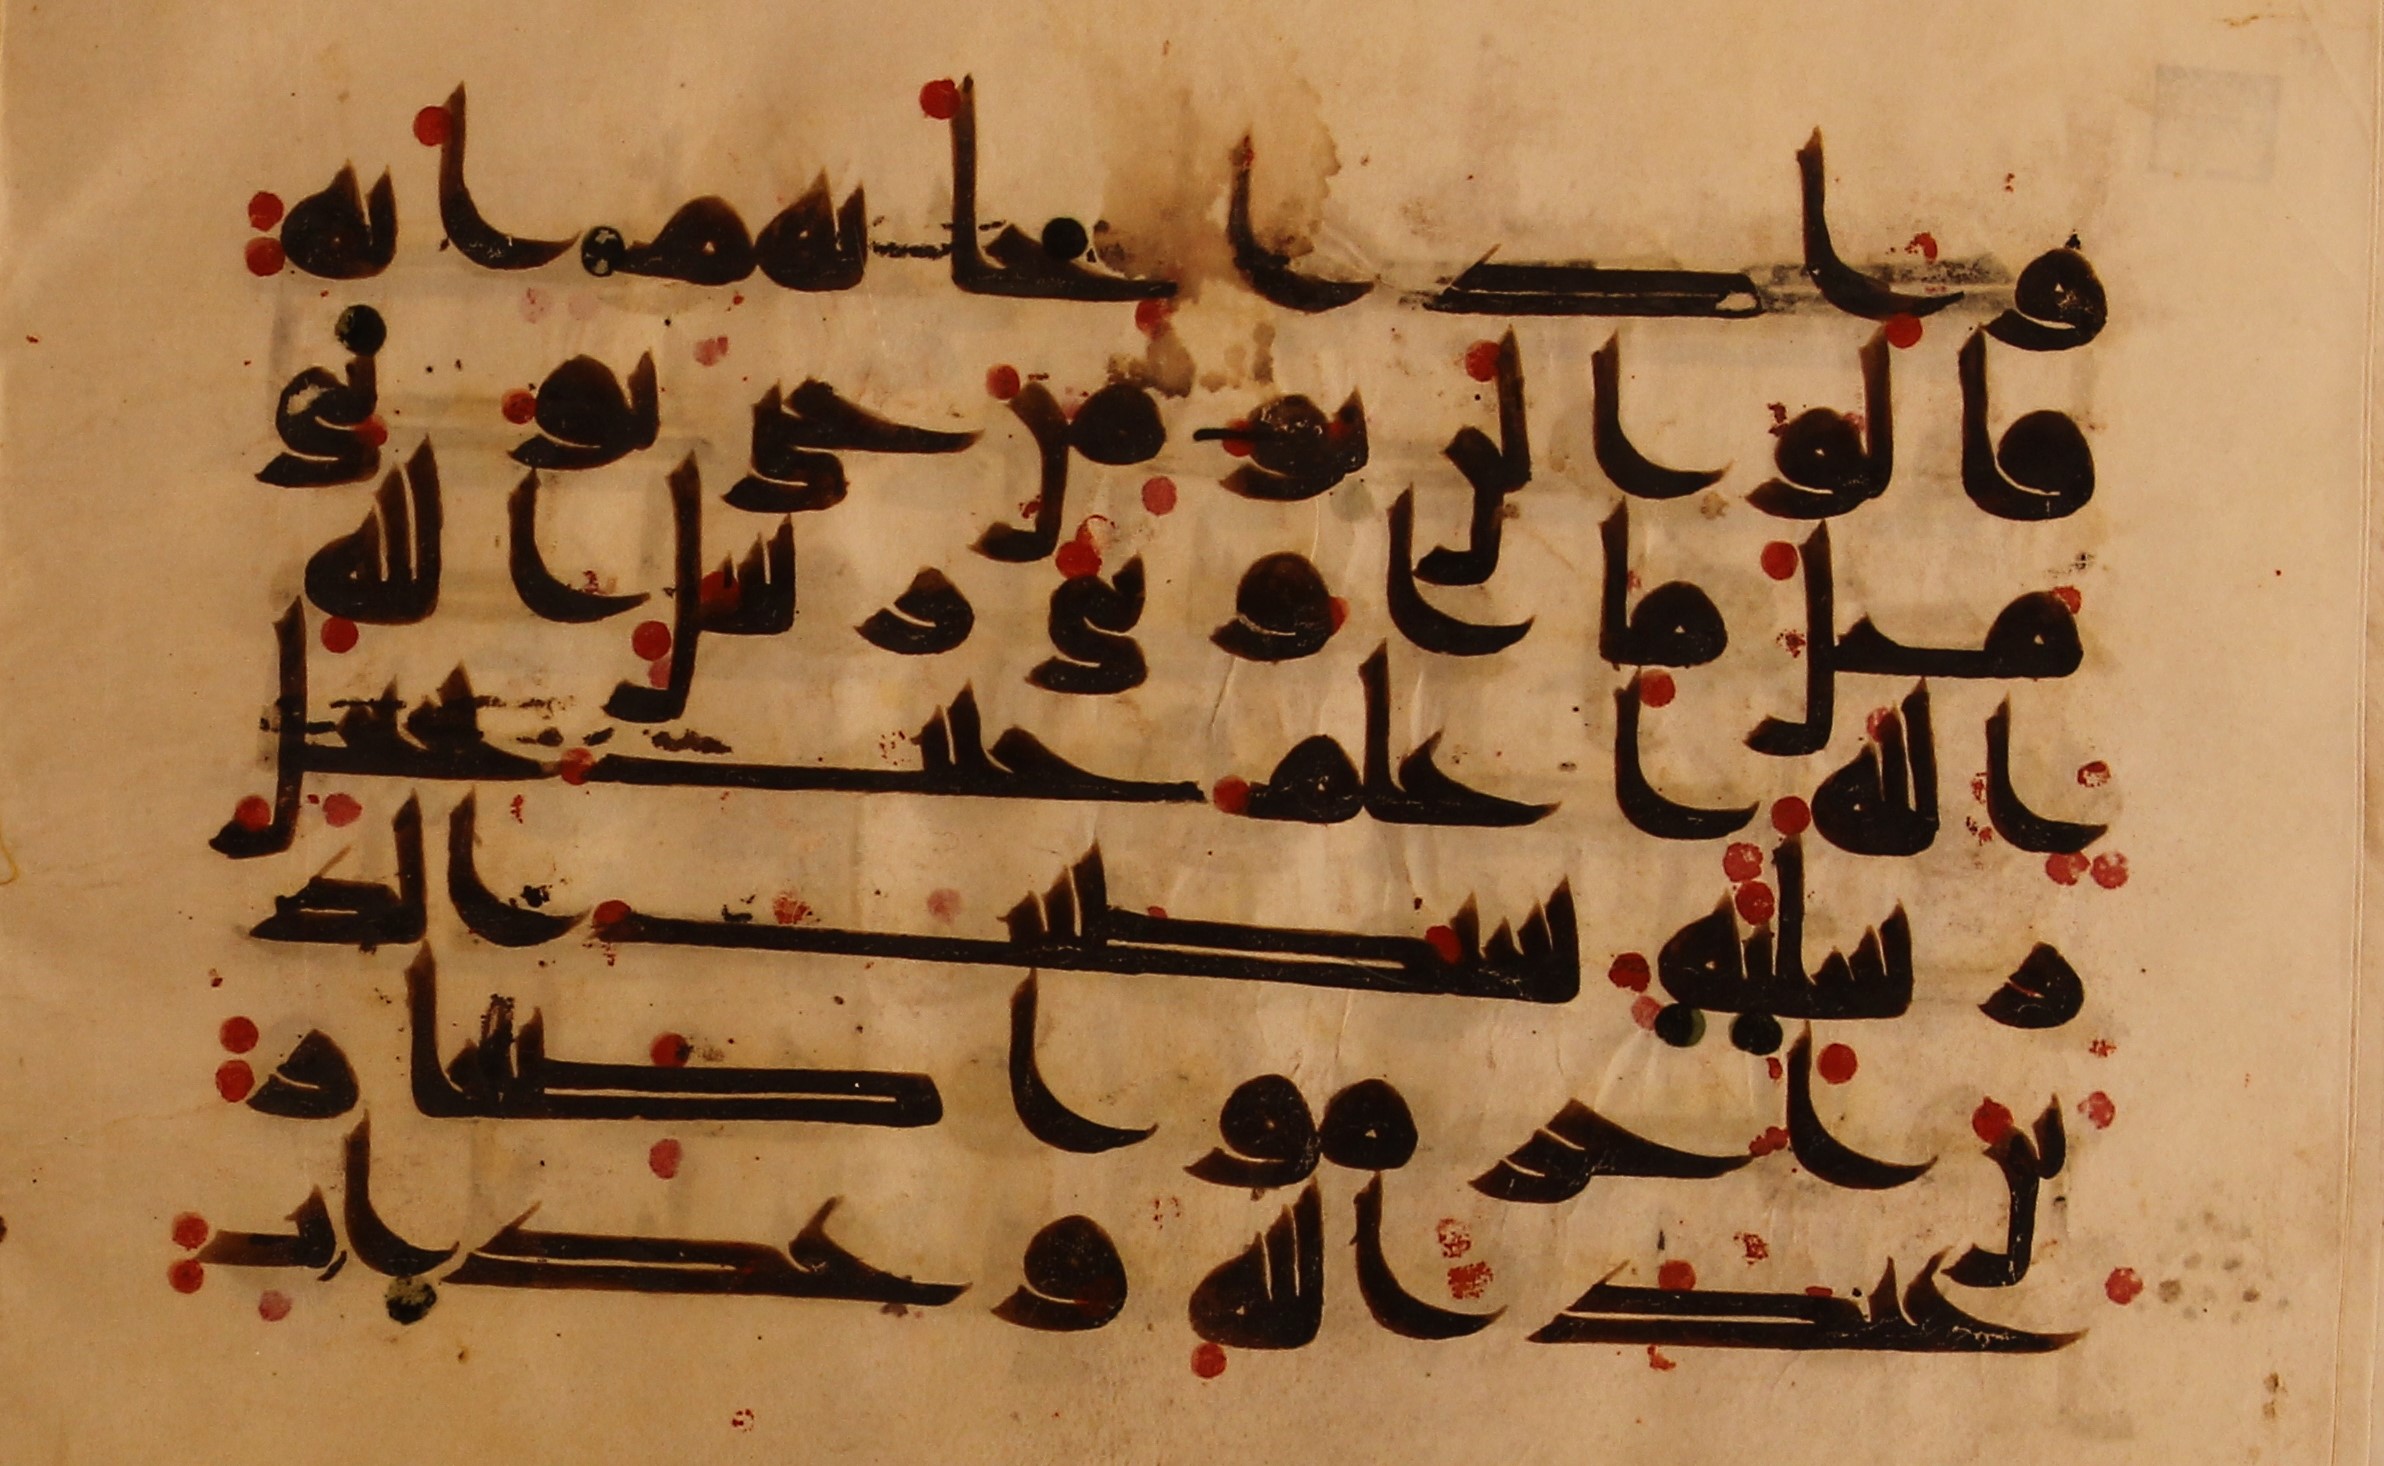 واذا جاتهم اية
قالوا لن نومن حتى نوتى
مثل ما اوتي رسل الله
الله اعلم حيث يجعل
رسلته سيصيب الذ
ين اجرموا صغار
عند الله وعذاب